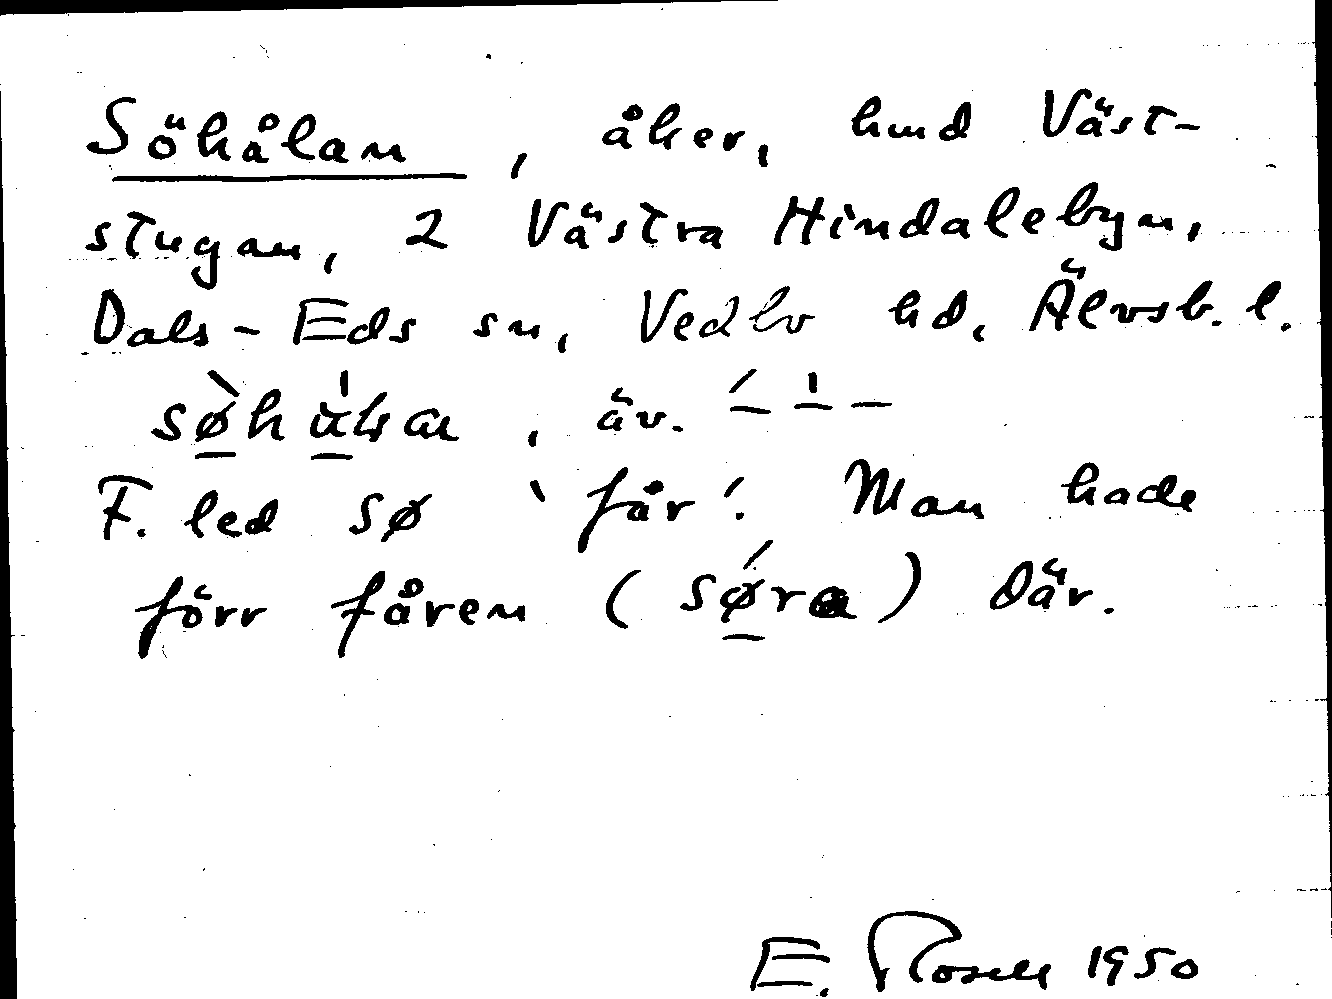 Söhålan, åker, hmd Väst-
stugan, 2 Västra Hindalebyn,
Dals-Eds sn, Vedbo hd, Älvsb. l.
, äv.
F. led sø `får´. Man hade
förr fåren (sǿ̱ra) där.
E. Rosell 1950